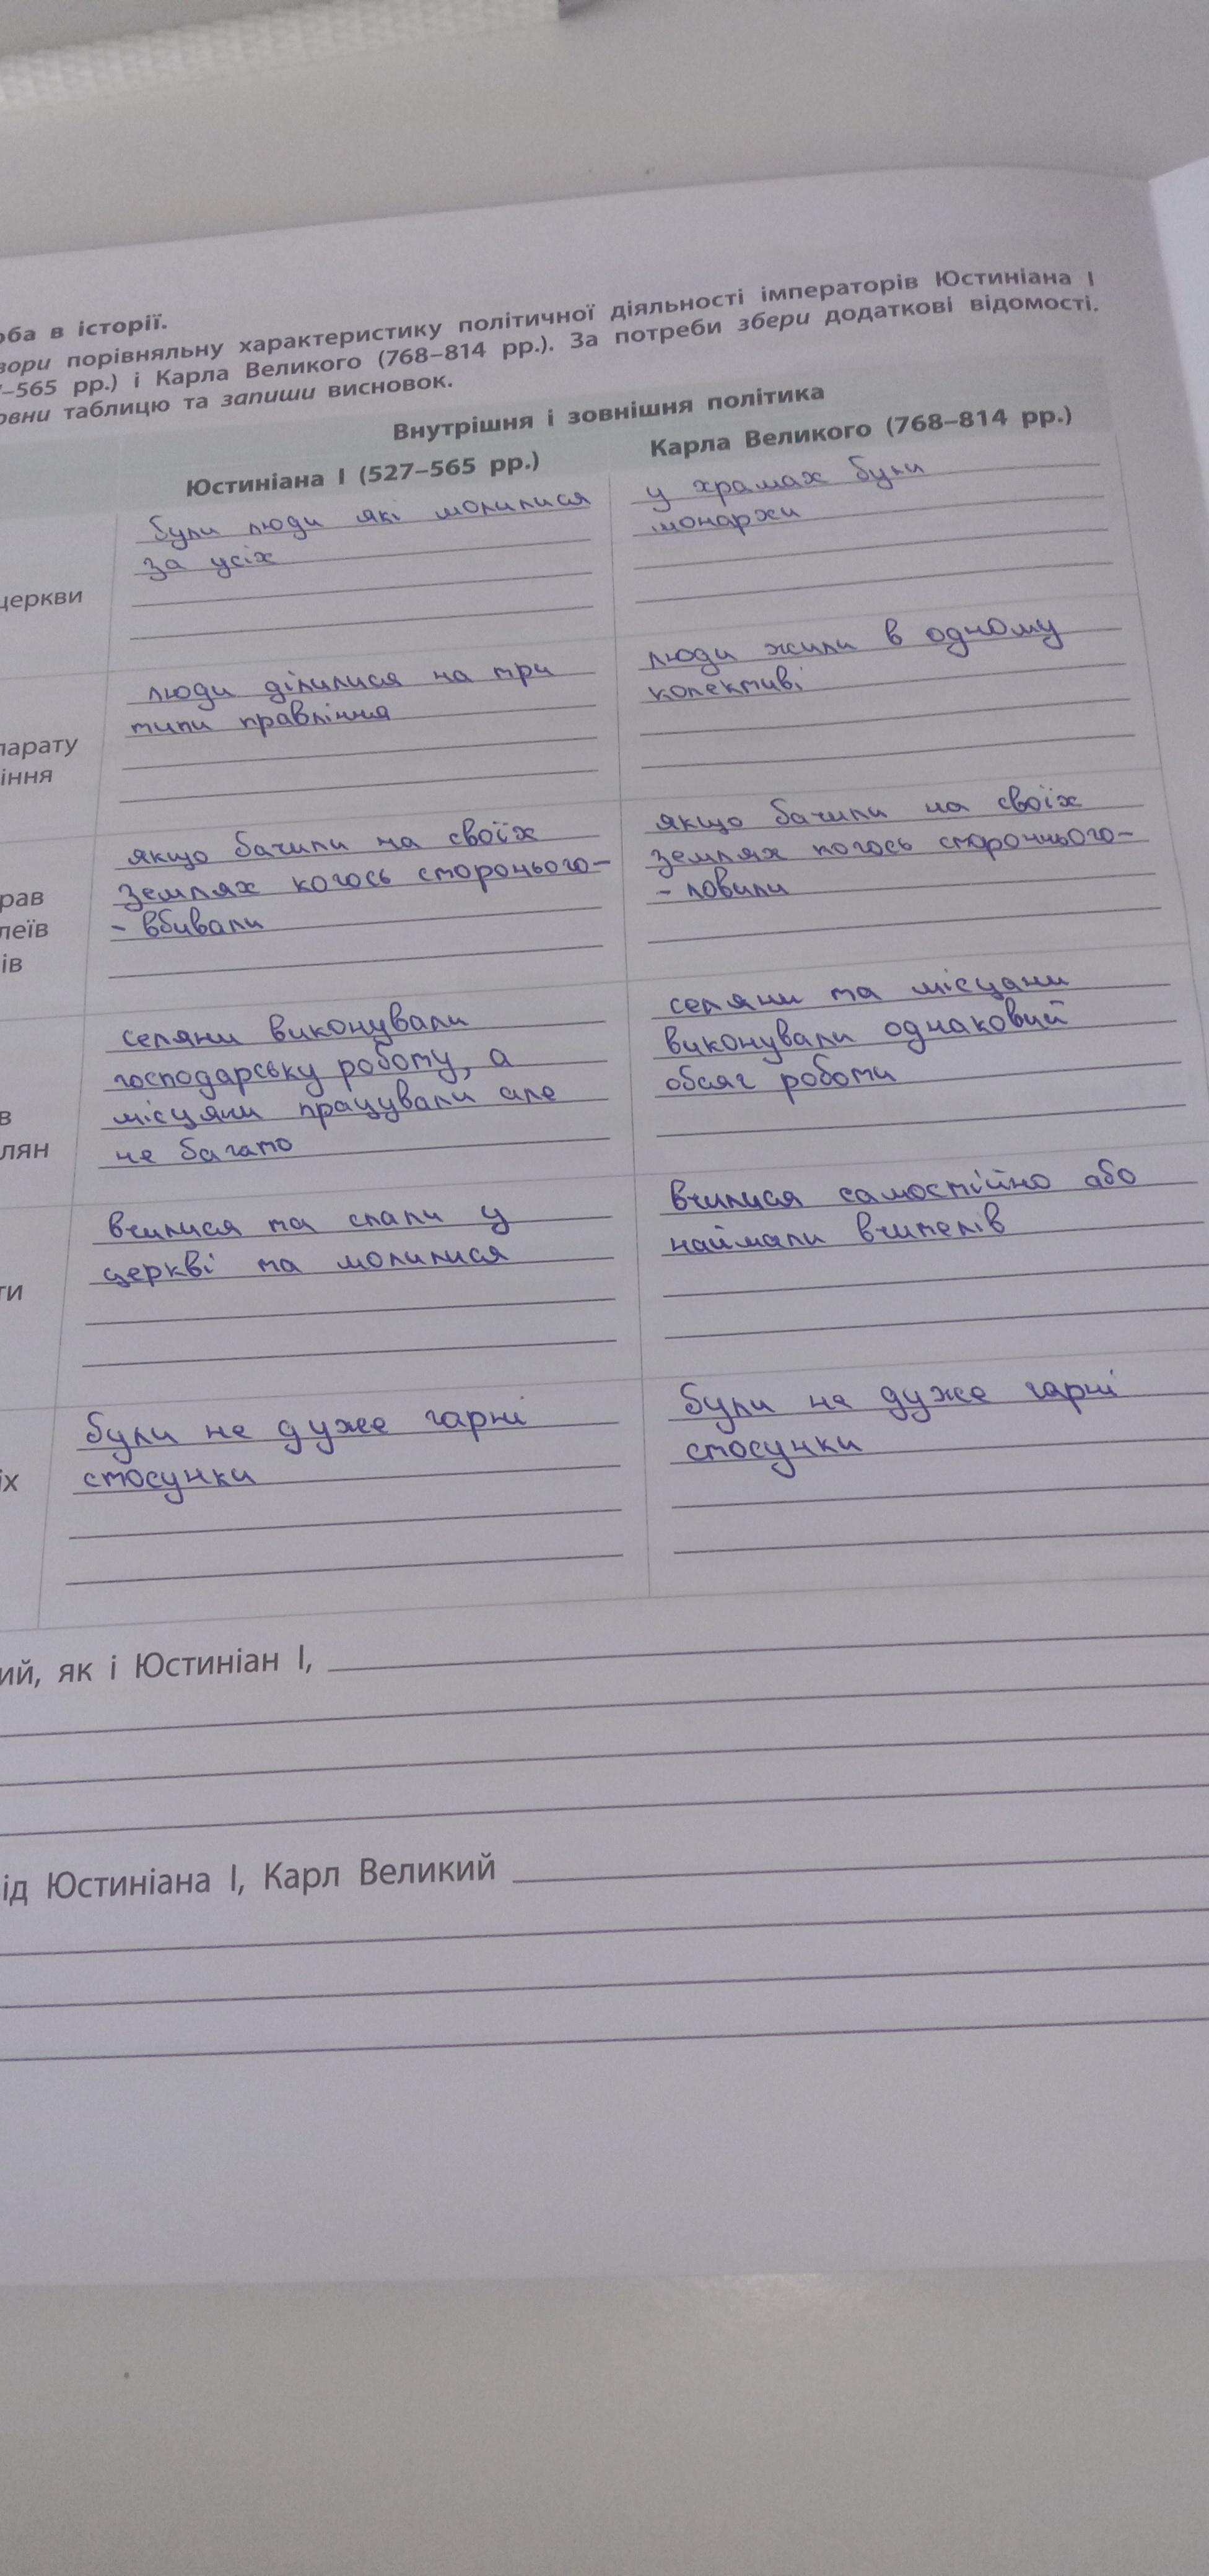 оба в історії.
вори порівняльну характеристику політичної діяльності імператорів Юстиніана І
–565 рр.) і Карла Великого (768–814 рр.). За потреби збери додаткові відомості.
овни таблицю та запиши висновок.
Внутрішня і зовнішня політика
Юстиніана І (527–565 рр.)
Карла Великого (768–814 рр.)
церкви
були люди які молилися
за усіх
у храмах були
монархи
парату
іння
люди ділилися на три
типи правління
люди жили в одному
колективі
рав
леїв
ів
якщо бачили на своїх
землях когось стороннього–
– вбивали
якщо бачили на своїх
землях когось стороннього–
– ловили
в
лян
селяни виконували
господарську роботу, а
місцяни працували але
не багато
селяни та місцани
виконували однаковий
обсяг роботи
ти
вчилися та спали у
церкві та молилися
вчилися самостійно або
наймали вчителів
іх
були не дуже гарні
стосунки
були не дуже гарні
стосунки
ий, як і Юстиніан І,
ід Юстиніана І, Карл Великий